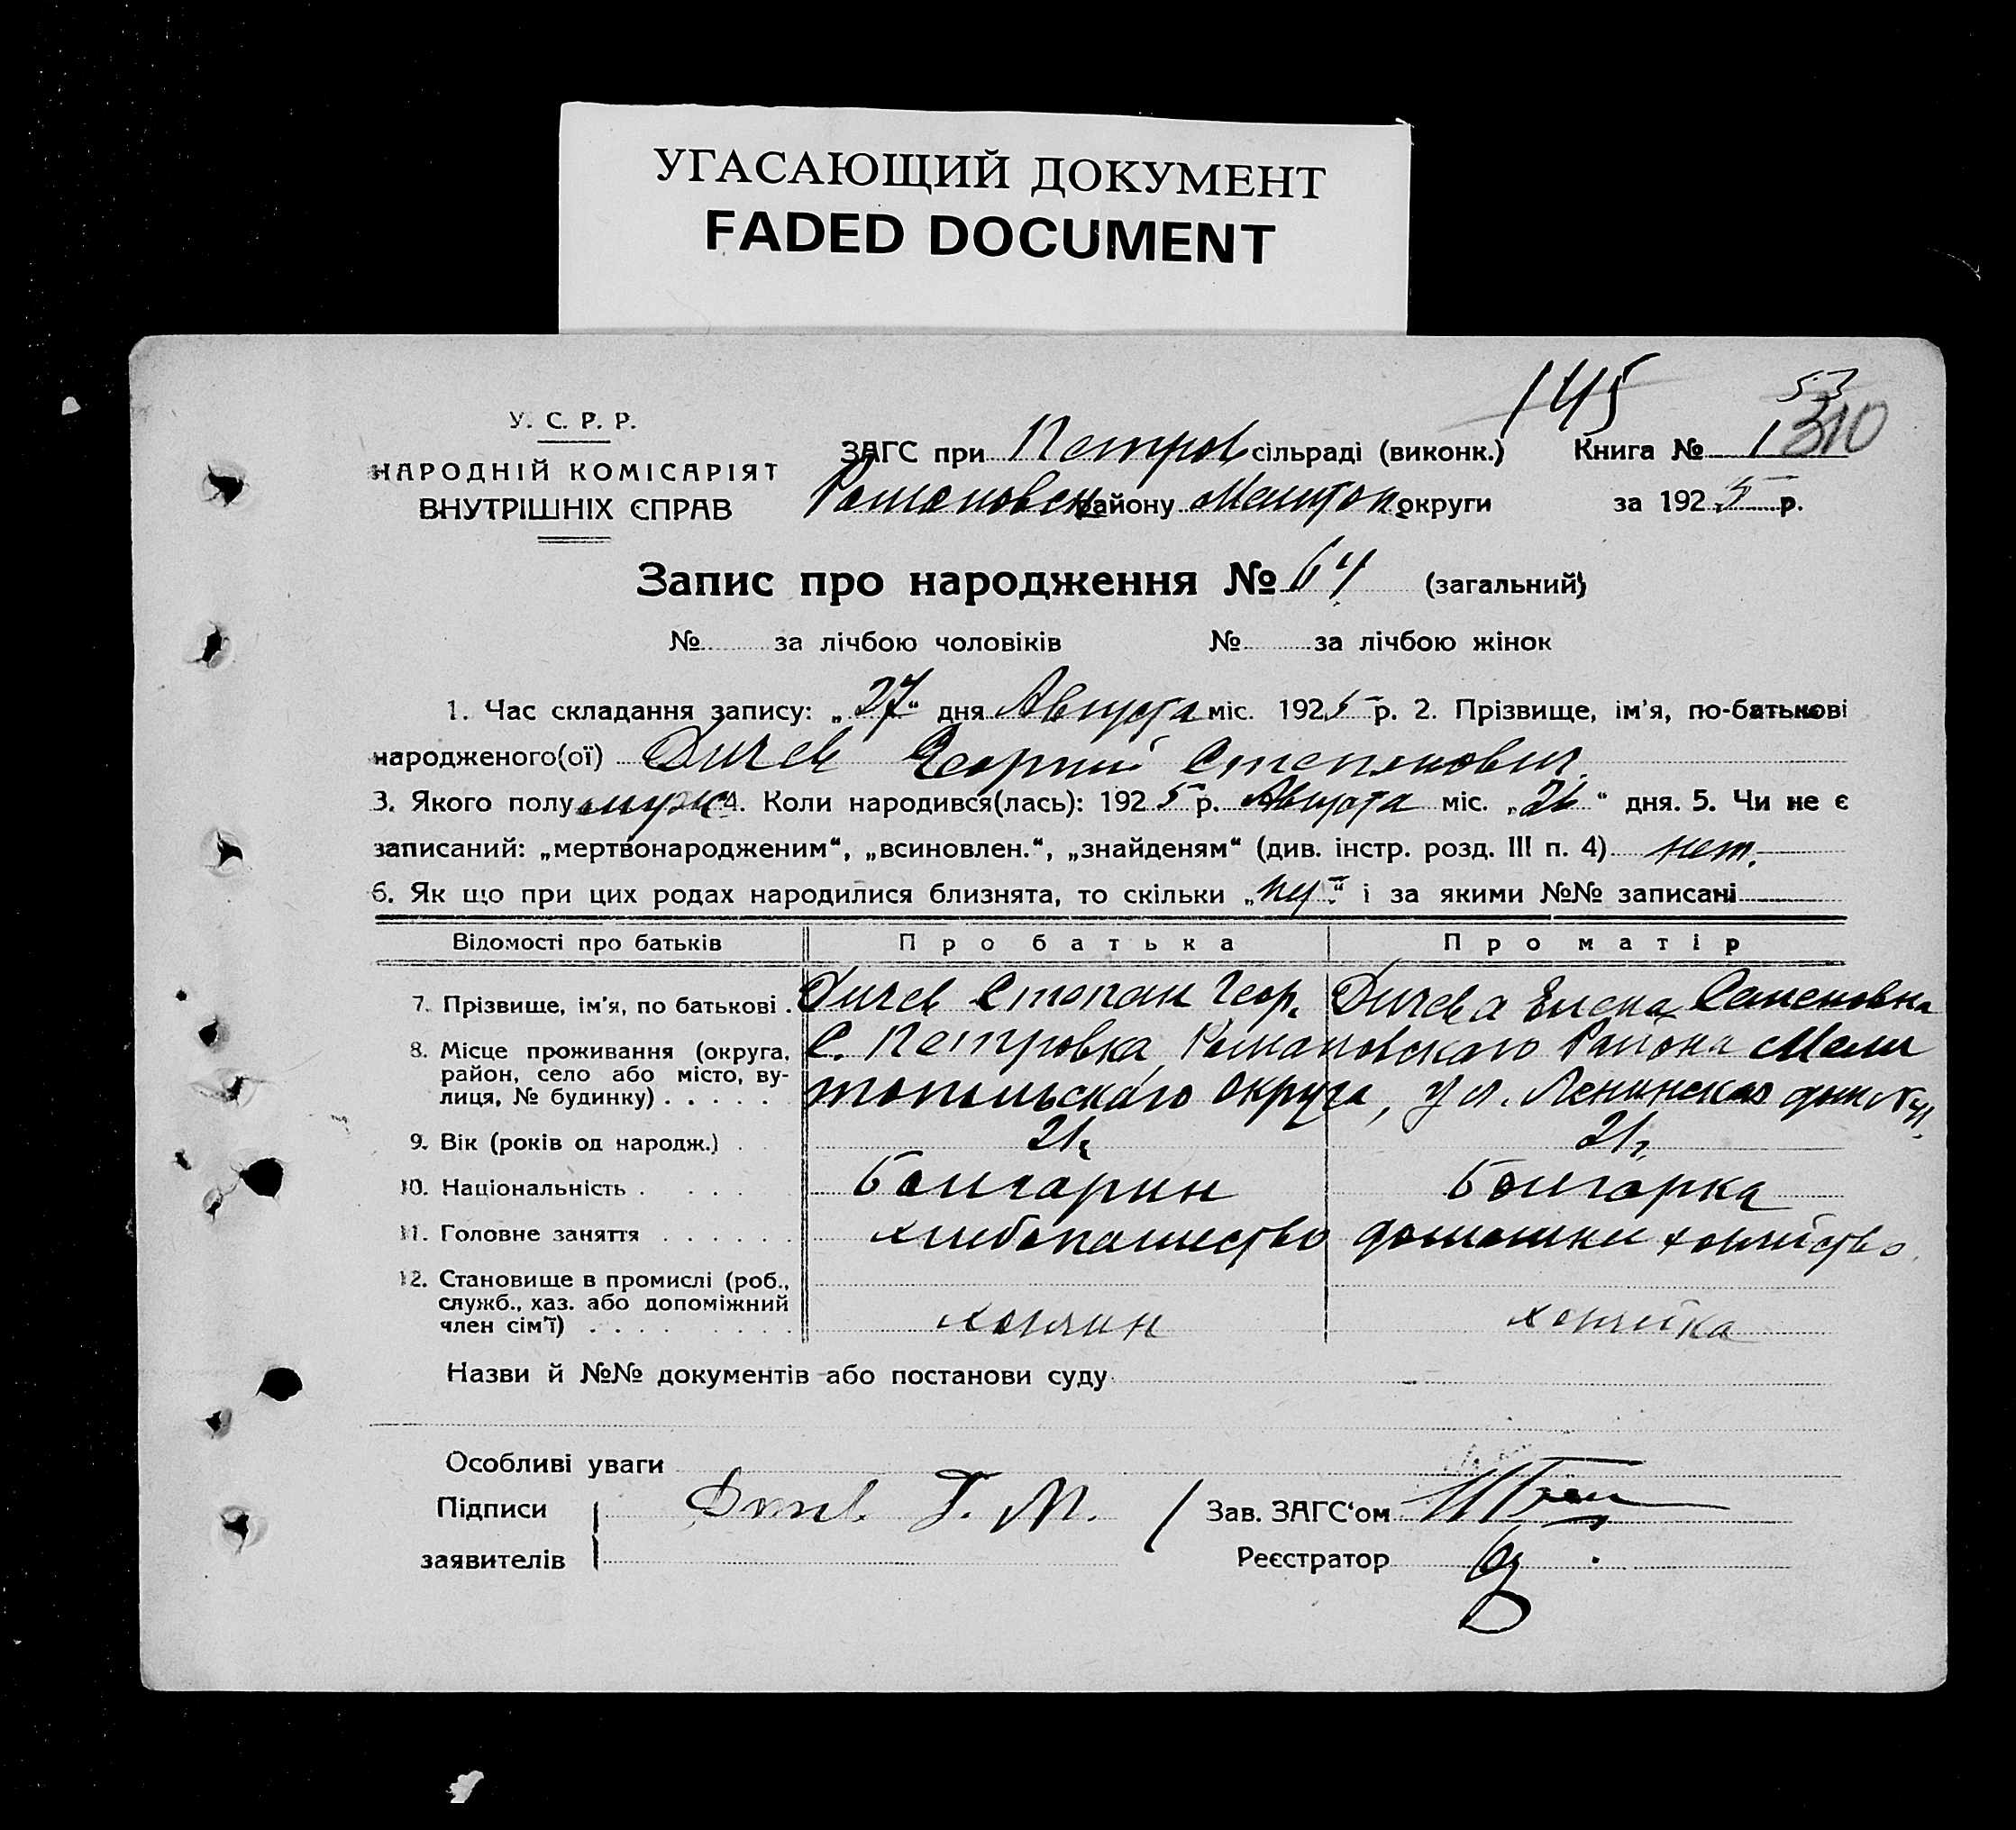 УГАСАЮЩИЙ ДОКУМЕНТ
FADED DOCUMENT
145
53
310
У. С. Р. Р.
НАРОДНІЙ КОМІСАРІЯТ
ВНУТРІШНІХ СПРАВ
ЗАГС при Петров сільраді (виконк.) Книга № 1
Романовск району Мелитоп округи за 1925 р.
Запис про народження № 64 (загальний)
№ за лічбою чоловіків № за лічбою жінок
1. Час складання запису: „27“ дня Августа міс. 1925 р. 2. Прізвище, ім'я, по-батькові
народженого(ої) Георгий Степанович
3. Якого полу муж 4. Коли народився(лась): 1925 р. Августа міс. „26“ дня. 5. Чи не є
записаний: „мертвонародженим“, „всиновлен.“, „знайденям“ (див. інстр. розд. III п. 4) нет.
6. Як що при цих родах народилися близнята, то скільки „нет“ і за якими №№ записані
Відомості про батьків Про батька Про матір
7. Прізвище, ім'я, по батькові . Степан Геор. Елена Семеновна
8. Місце проживання (округа, С. Петровка Романовского Района Мели
район, село або місто, ву-
лиця, № будинку) . . . . . топольского округа, ул. Ленинская дом №
9. Вік (років од народж.) . 21 21
10. Національність . . . . Болгарин Болгарка
11. Головне заняття . . . . . . хлебопашество домашнее хозяйство
12. Становище в промислі (роб.,
служб., хаз. або допоміжний
член сім'ї) . . . . . . . . . хозяин хозяйка
Назви й №№ документів або постанови суду
Особливі уваги
Підписи Г. М. Зав. ЗАГС‘ом
заявителів Реєстратор